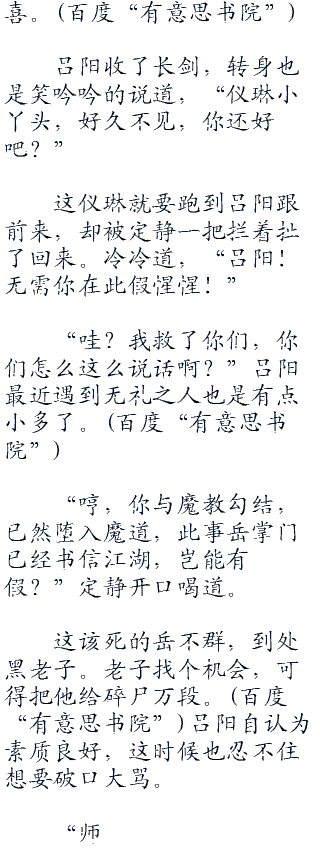 喜。(百度“有意思书院”)
吕阳收了长剑，转身也
是笑吟吟的说道，“仪琳小
丫头，好久不见，你还好
吧？”
这仪琳就要跑到吕阳跟
前来，却被定静一把拦着扯
了回来。冷冷道，“吕阳！
无需你在此假惺惺！”
“哇？我救了你们，你
们怎么这么说话啊？”吕阳
最近遇到无礼之人也是有点
小多了。(百度“有意思书
院”)
“哼，你与魔教勾结，
已然堕入魔道，此事岳掌门
已经书信江湖，岂能有
假？”定静开口喝道。
这该死的岳不群，到处
黑老子。老子找个机会，可
得把他给碎尸万段。(百度
“有意思书院”)吕阳自认为
素质良好，这时候也忍不住
想要破口大骂。
“师